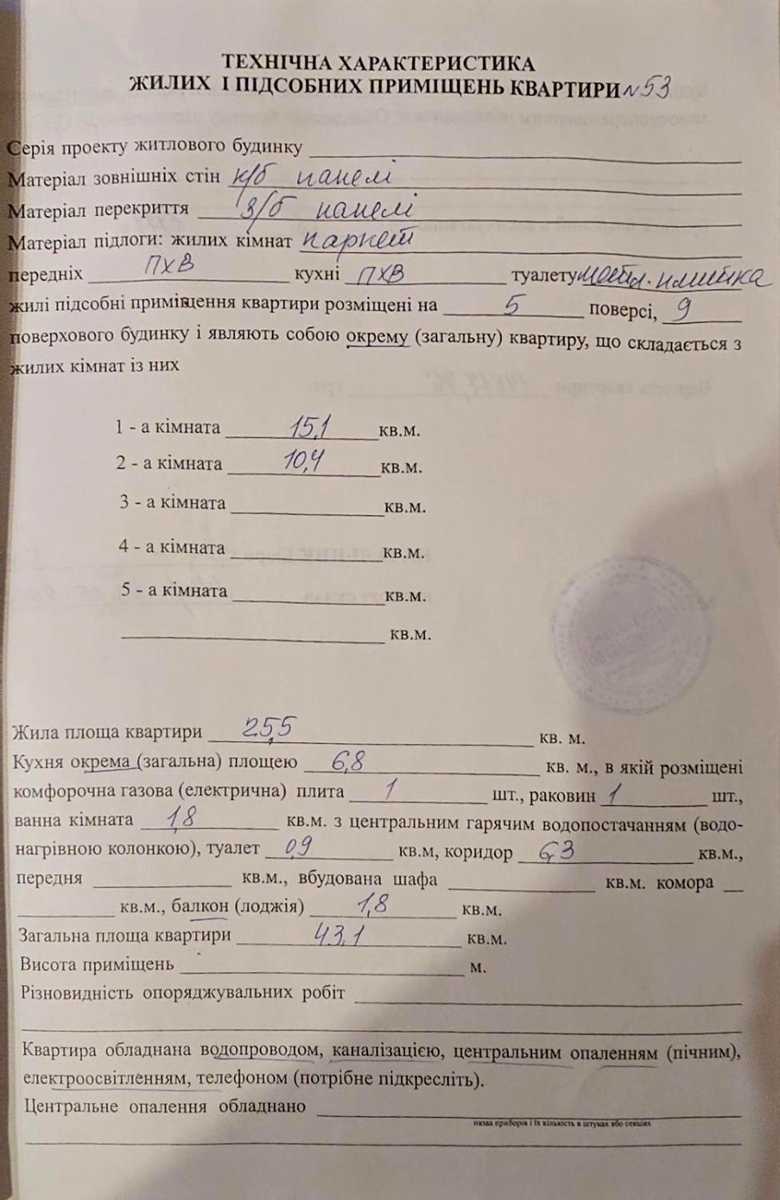 ТЕХНІЧНА ХАРАКТЕРИСТИКА
ЖИЛИХ І ПІДСОБНИХ ПРИМІЩЕНЬ КВАРТИРИ №53
Серія проекту житлового будинку
Матеріал зовнішніх стін к/б панелі
Матеріал перекриття З/б панелі
Матеріал підлоги: жилих кімнат паркет
передніх ПХВ кухні ПХВ туалету плитка
жилі підсобні приміщення квартири розміщені на 5 поверсі, 9
поверхового будинку і являють собою окрему (загальну) квартиру, що складається з
жилих кімнат із них
1 - а кімната 15,1 кв.м.
2 - а кімната 10,4 кв.м.
3 - а кімната кв.м.
4 - а кімната кв.м.
5 - а кімната кв.м.
кв.м.
Жила площа квартири 25,5 кв. м.
Кухня окрема (загальна) площею 6,8 кв. м., в якій розміщені
комфорочна газова (електрична) плита 1 шт., раковин 1 шт.,
ванна кімната 1,8 кв.м. з центральним гарячим водопостачанням (водо-
нагрівною колонкою), туалет 0,9 кв.м, коридор 6,3 кв.м.,
передня кв.м., вбудована шафа кв.м. комора
кв.м., балкон (лоджія) 1,8 кв.м.
Загальна площа квартири 43,1 кв.м.
Висота приміщень м.
Різновидність опоряджувальних робіт
Квартира обладнана водопроводом, каналізацією, центральним опаленням (пічним),
електроосвітленням, телефоном (потрібне підкресліть).
Центральне опалення обладнано
назва приборів і їх кількість в штуках або секціях